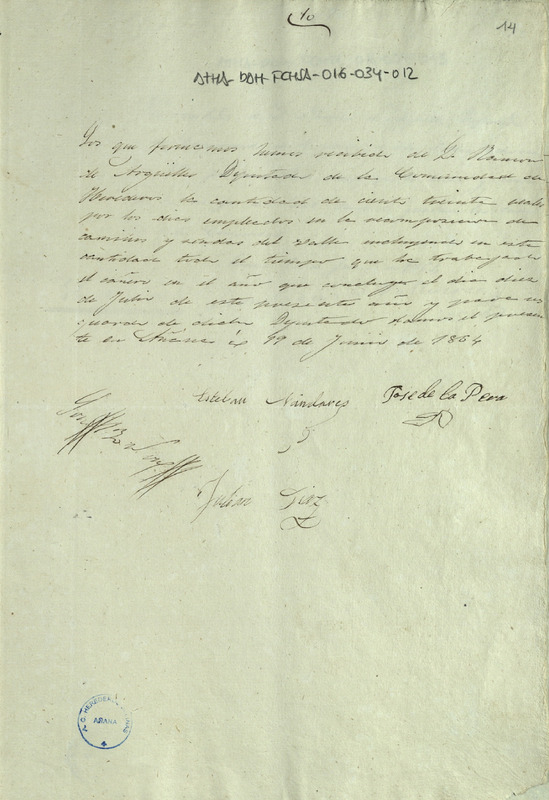 10
14
ATHA-DAH-FCHSA-016-034-012
Los que firmamos hemos recibido de D. Ramon
de Argüelles Diputado de la Comunidad de
Herederos la cantidad de ciento treinta reales
por los dias empleados en la recomposicion de
caminos y sendas del valle incluyendo en esta
cantidad todo el tiempo que ha trabajado
el cañero en el año que concluye el dia diez
de Julio de este presente año y para res
guardo de dicho Diputado damos el presen
te en Añana a 19 de Junio de 1864
Esteban Nandares Jose de la Pena
Julian Diaz
ARANA